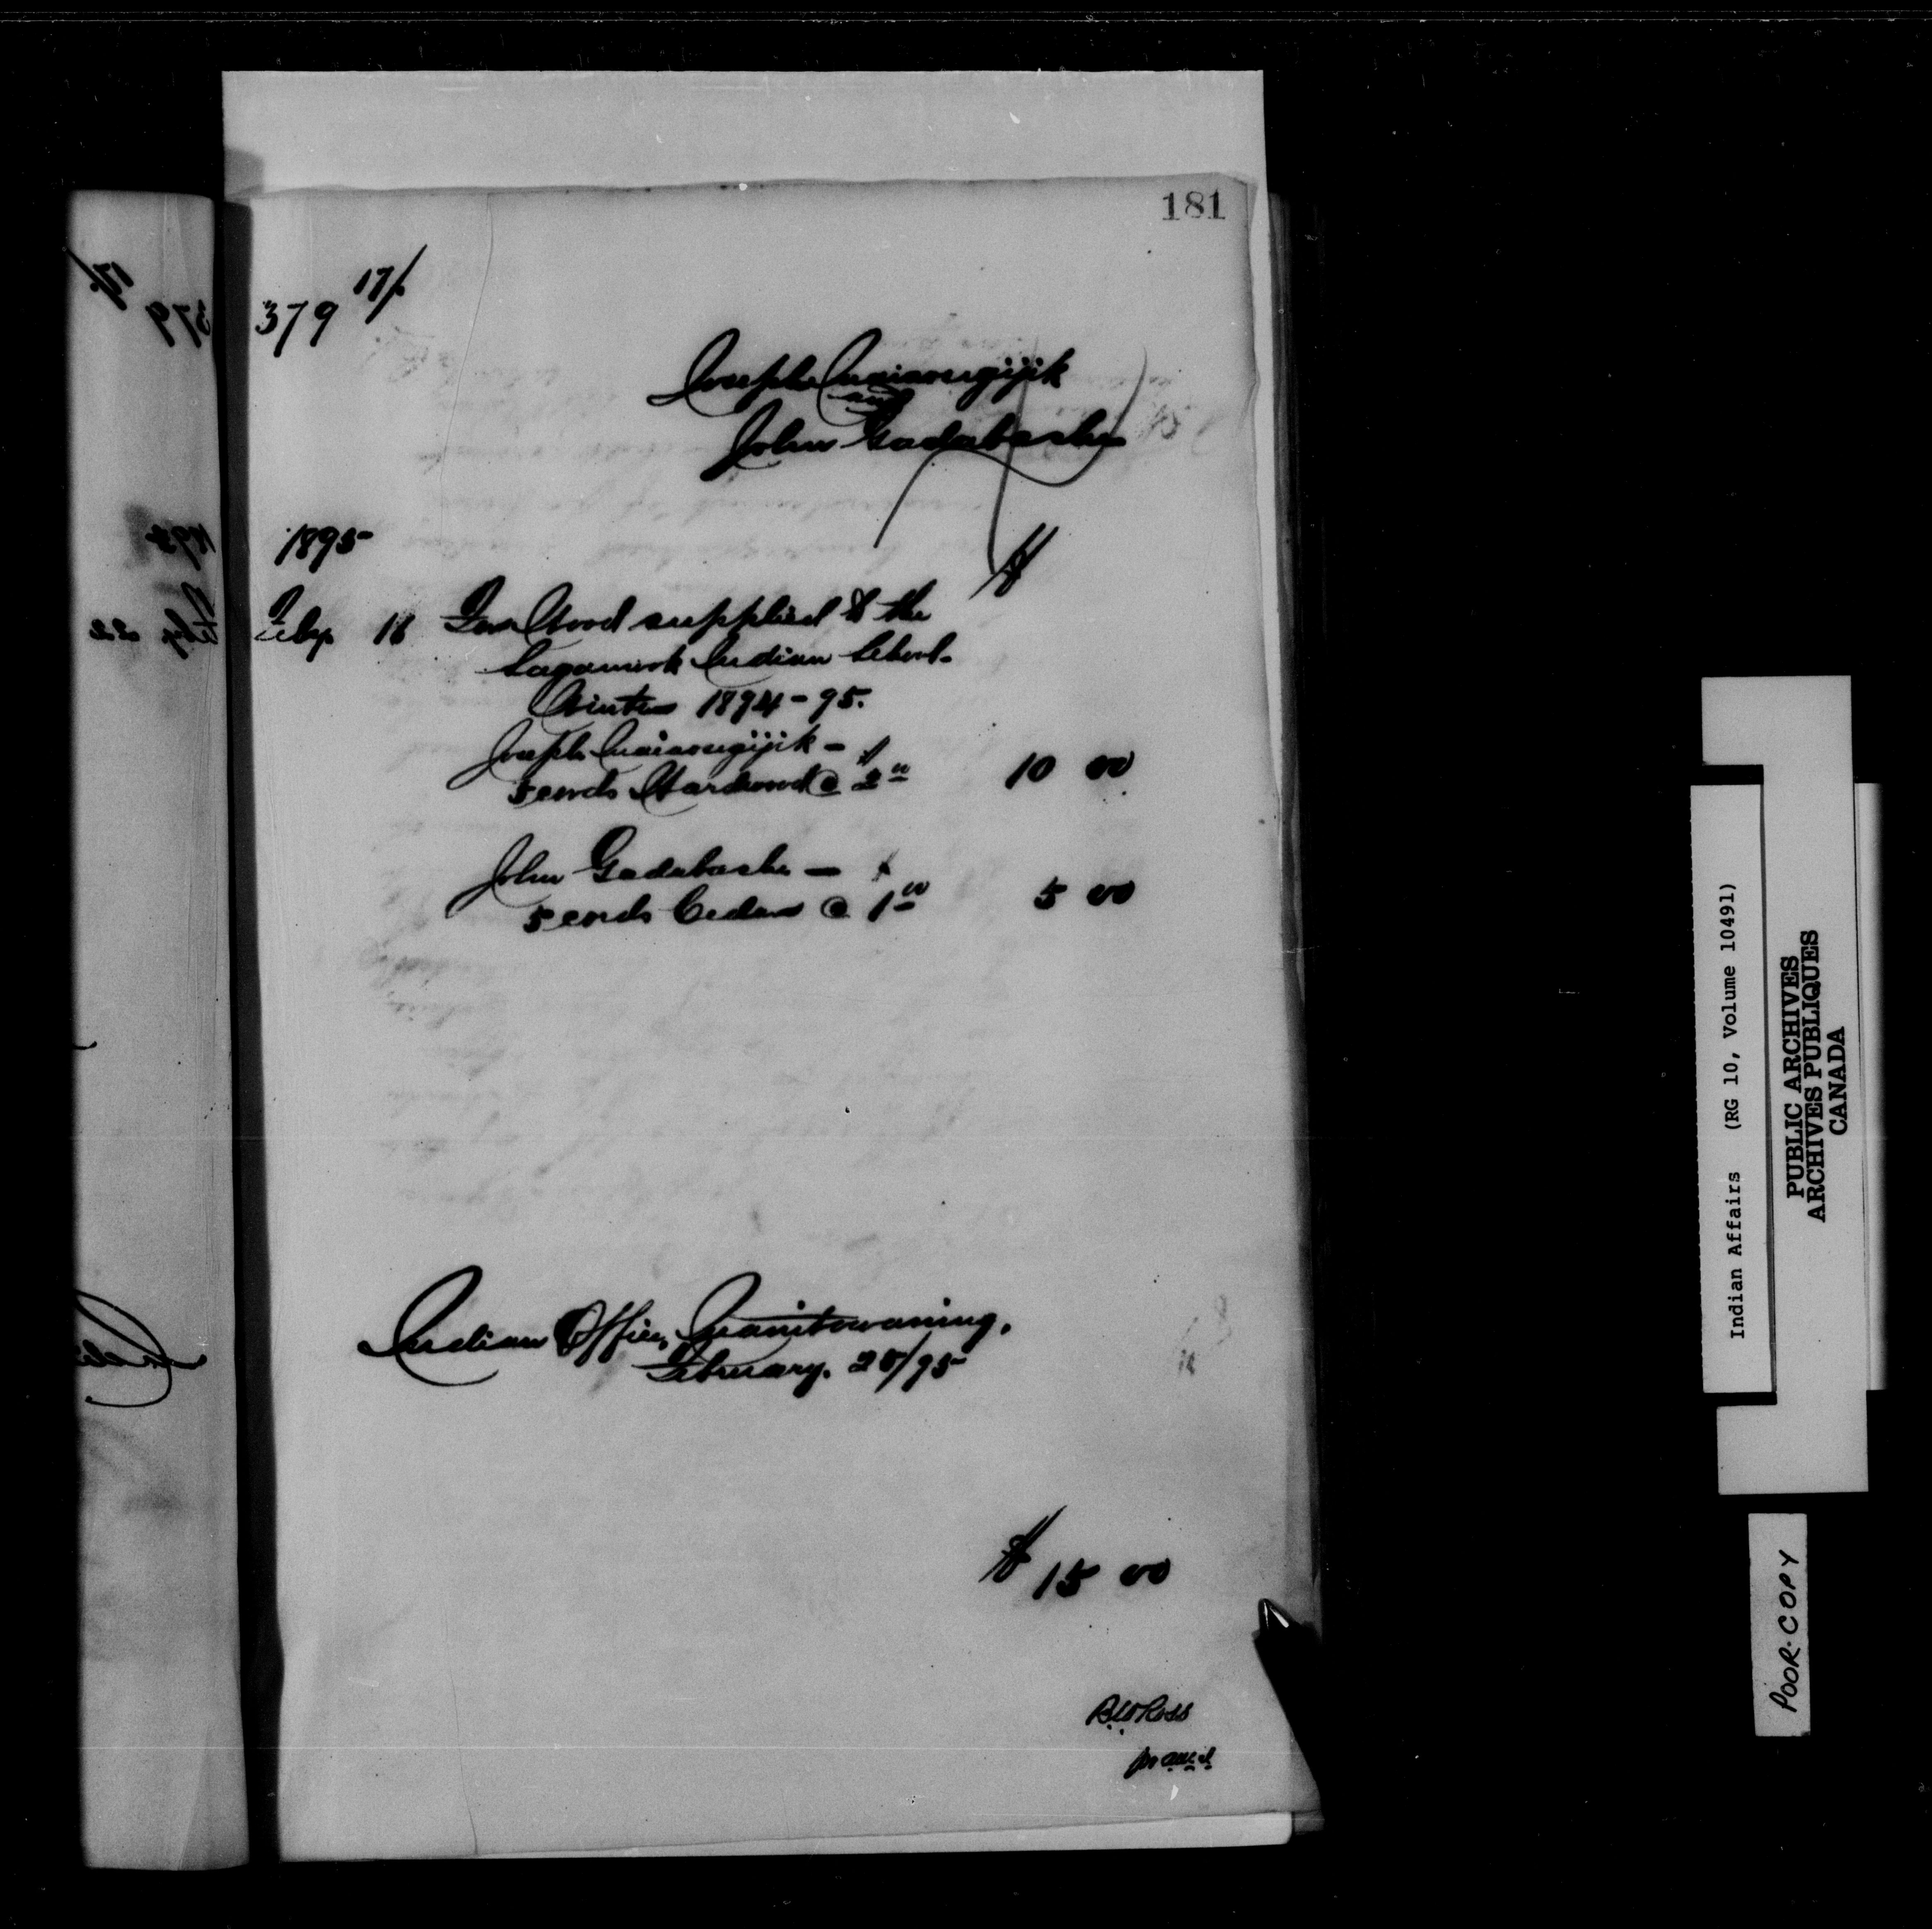 181
379 17/
Joseph Maiaougijik
and
John Gadabashe
1895
$
Feby 18 For Wood supplied to the
Sagamook Indian School.
Winter 1894-95.
Joseph Maiaougijik - $
5 cords Hardwood @ 2 00 10 00
John Gadabashe -
5 cords Cedar @ 1 00 5 00
Indian Office, Manitowaning,
February. 25/95
$ 15 00
B W Ross
Indian Affairs (RG 10, Volume 10491)
PUBLIC ARCHIVES
ARCHIVES PUBLIQUES
CANADA
POOR-COPY